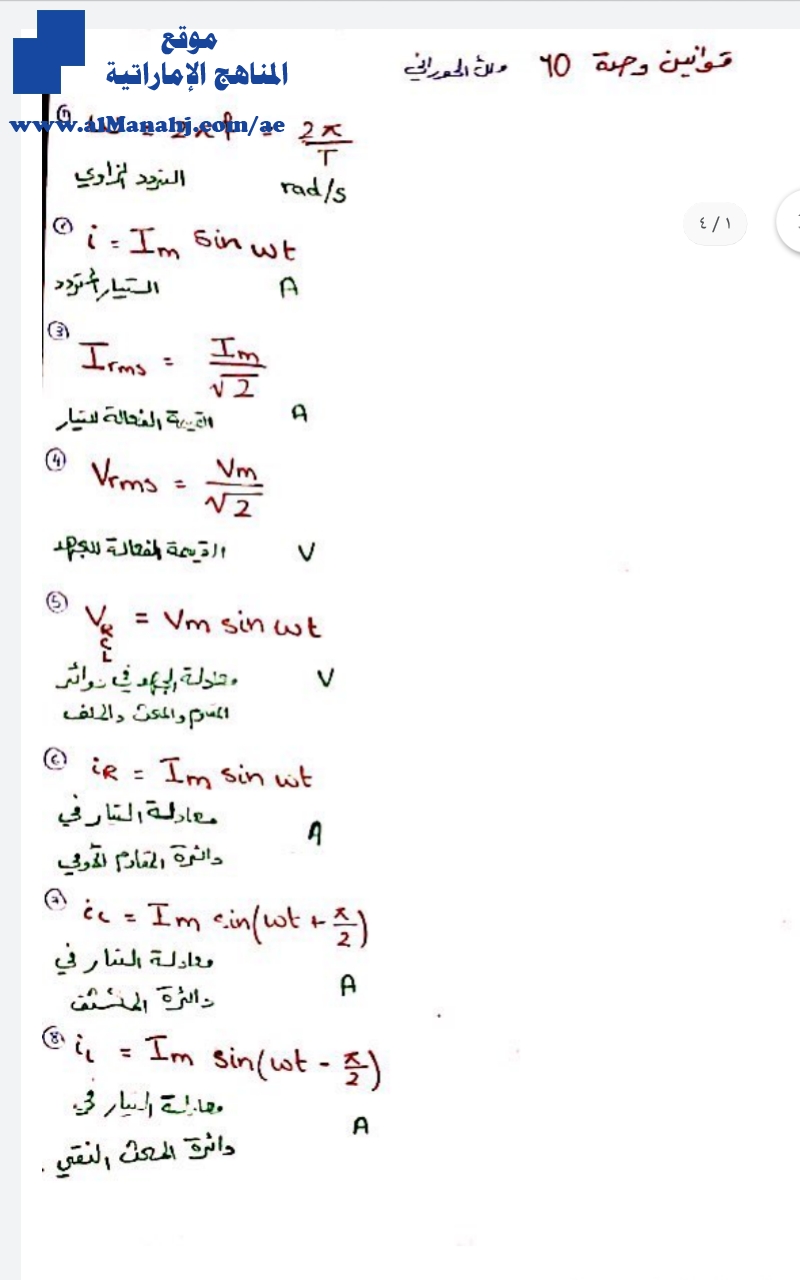 موقع
المناهج الإماراتية
www.alManahj.com/ae
قوانين وحدة 10 ملك الحوراني
١ / ٤
① ω = 2πf = 2π/T
التردد الزاوي rad/s
② i = Im sin ωt
التيار المتردد A
③ Irms = Im/√2
القيمة الفعالة للتيار A
④ Vrms = Vm/√2
القيمة الفعالة للجهد V
⑤ V R C L = Vm sin ωt
معادلة الجهد في دوائر V
المقاوم والمحث والمكثف
⑥ iR = Im sin ωt
معادلة التيار في
دائرة المقاوم الأومي A
⑦ ic = Im sin(ωt + π/2)
معادلة التيار في
دائرة المكثف A
⑧ iL = Im sin(ωt - π/2)
معادلة التيار في
دائرة المحث النقي A